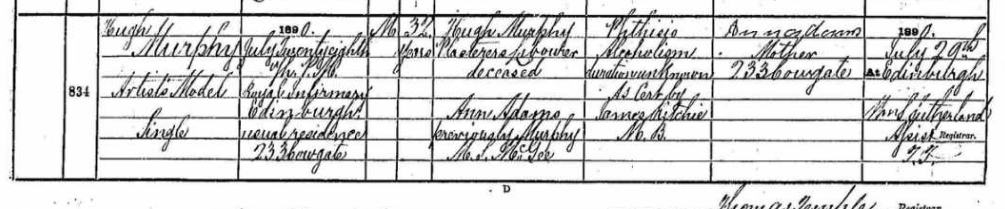 834
Hugh
Murphy
Artist's Model
Single
1890.
July Twentyeighth
Royal Infirmary
Edinburgh.
usual residence
233 Cowgate
M
32
Yrs
Hugh Murphy
Plasterers Labourer
deceased
Ann Adams
previously Murphy
M.S. McGee
Phthisis
Alcoholism
duration unknown
As Cert by
James Ritchie
M.B.
Ann Adams
Mother
233 Cowgate
1890.
July 29th
At Edinburgh
Wm Sutherland
Assist Registrar.
D
Thomas Temple
Registrar